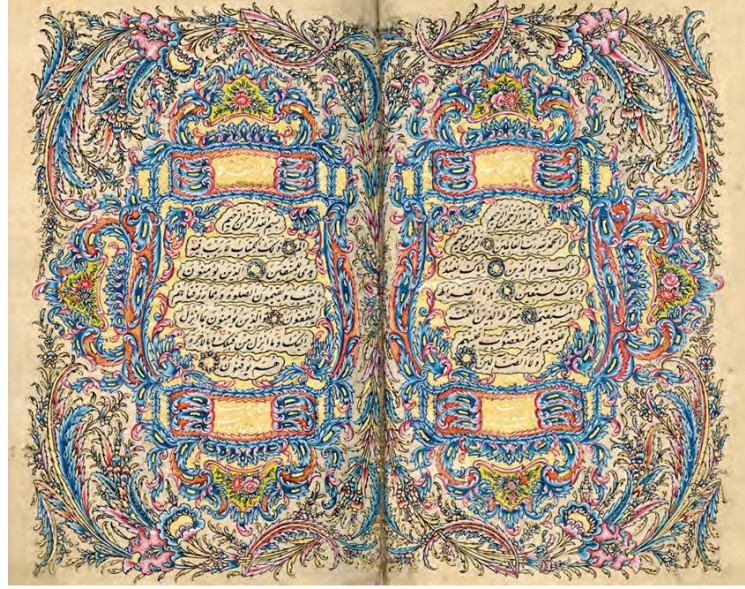 بسم الله الرحمن الرحيم
الحمد لله رب العالمين الرحمن الرحيم
مالك يوم الدين اياك نعبد
واياك نستعين اهدنا الصراط
المستقيم صراط الذين انعمت
عليهم غير المغضوب عليهم
ولا الضالين
بسم الله الرحمن الرحيم
الم ذلك الكتاب لا ريب فيه
هدى للمتقين الذين يؤمنون
بالغيب ويقيمون الصلوة ومما رزقناهم
ينفقون والذين يؤمنون بما انزل
اليك وما انزل من قبلك وبالاخرة
هم يوقنون